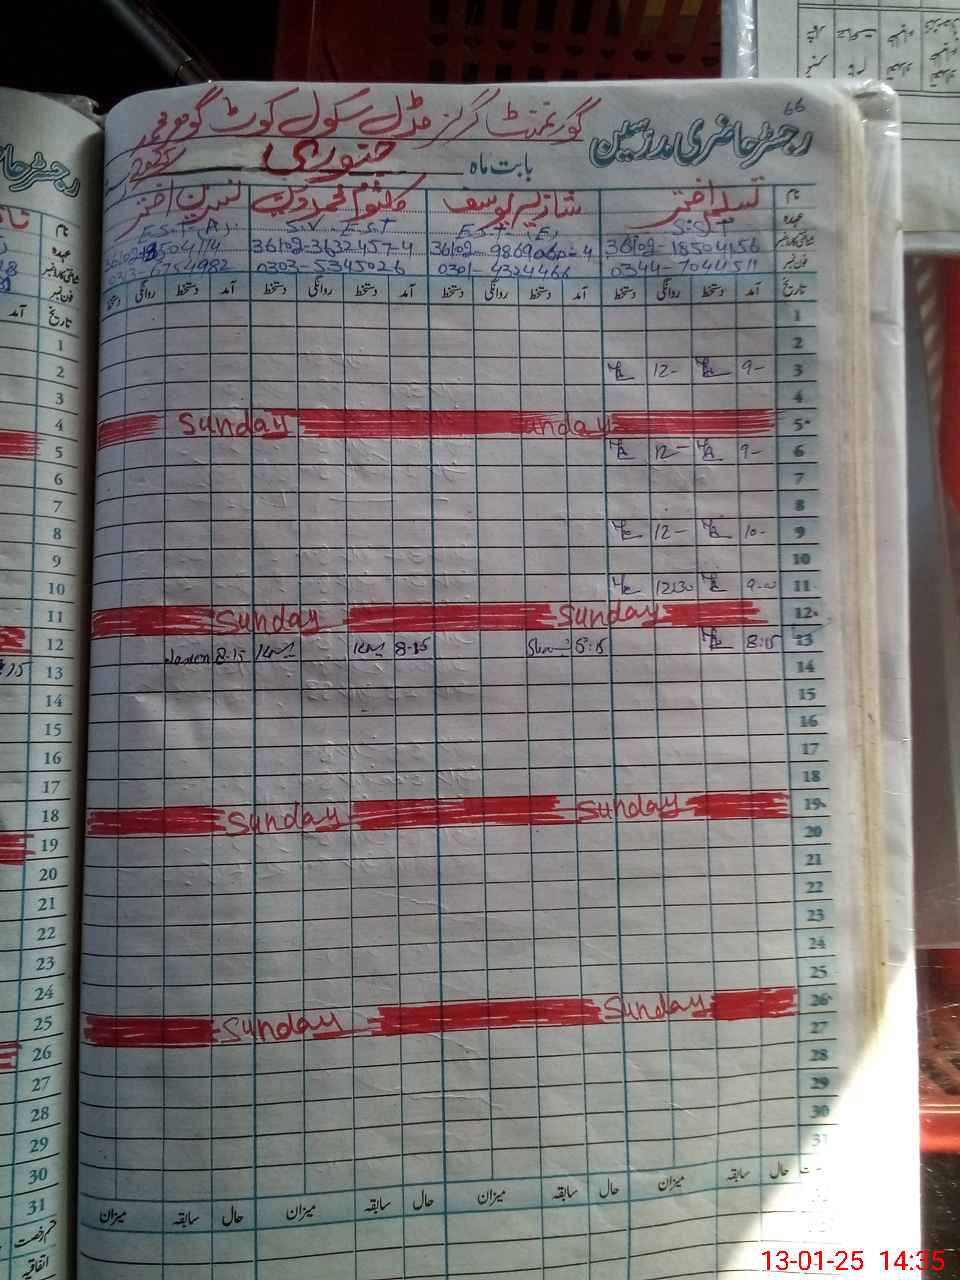 66
گورنمنٹ گرلز مڈل سکول کوٹ
رجسٹر حاضری مدرسین
بابت ماہ جنوری 2025
نام تسلیم اختر شازیہ یوسف کلثوم محمد دین نسرین اختر
عہدہ S.S.T E.S.T (E) S.V. E.S.T E.S.T (A)
شناختی کارڈ نمبر 36102-18504156 36102-9869060-4 36102-3632457-4
فون نمبر 0344-7044511 0301-4324466 0303-5345026 0313-6754982
تاریخ آمد دستخط روانگی دستخط آمد دستخط روانگی دستخط آمد دستخط روانگی دستخط آمد دستخط روانگی دستخط
1
2
3 9- 12-
4
5 Sunday Sunday
6 9- 12-
7
8
9 10- 12-
10
11 9-00 12:30
12 Sunday Sunday
13 8:15 8:15 8-15 8-15
14
15
16
17
18
19 Sunday Sunday
20
21
22
23
24
25
26 Sunday Sunday
27
28
29
30
31
حال سابقہ میزان حال سابقہ میزان حال سابقہ میزان حال سابقہ میزان
رجسٹر حا
نام
عہدہ
شناختی کارڈ نمبر
فون نمبر
تاریخ آمد
1
2
3
4
5
6
7
8
9
10
11
12
13
14
15
16
17
18
19
20
21
22
23
24
25
26
27
28
29
30
31
قسم رخصت
اتفاقیہ
13-01-25 14:35